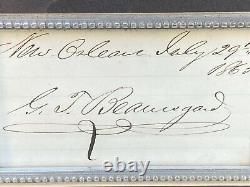 New Orleans July 29th
G. T. Beauregard